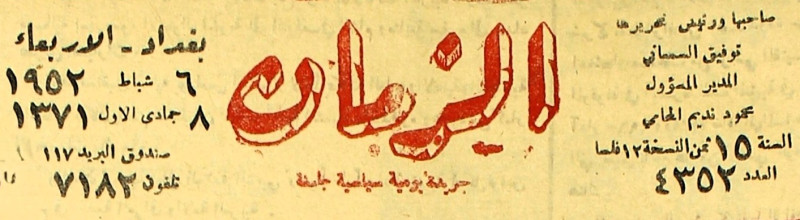 صاحبها ورئيس تحريرها
توفيق السمعاني
المدير المسؤول
محمود نديم المحامي
السنة ١٥ ثمن النسخة ١٢ فلسا
العدد ٤٣٥٢
الزمان
جريدة يومية سياسية جامعة
بغداد - الاربعاء
٦ شباط ١٩٥٢
٨ جمادى الاول ١٣٧١
صندوق البريد ١١٧
تلفون ٧١٨٢